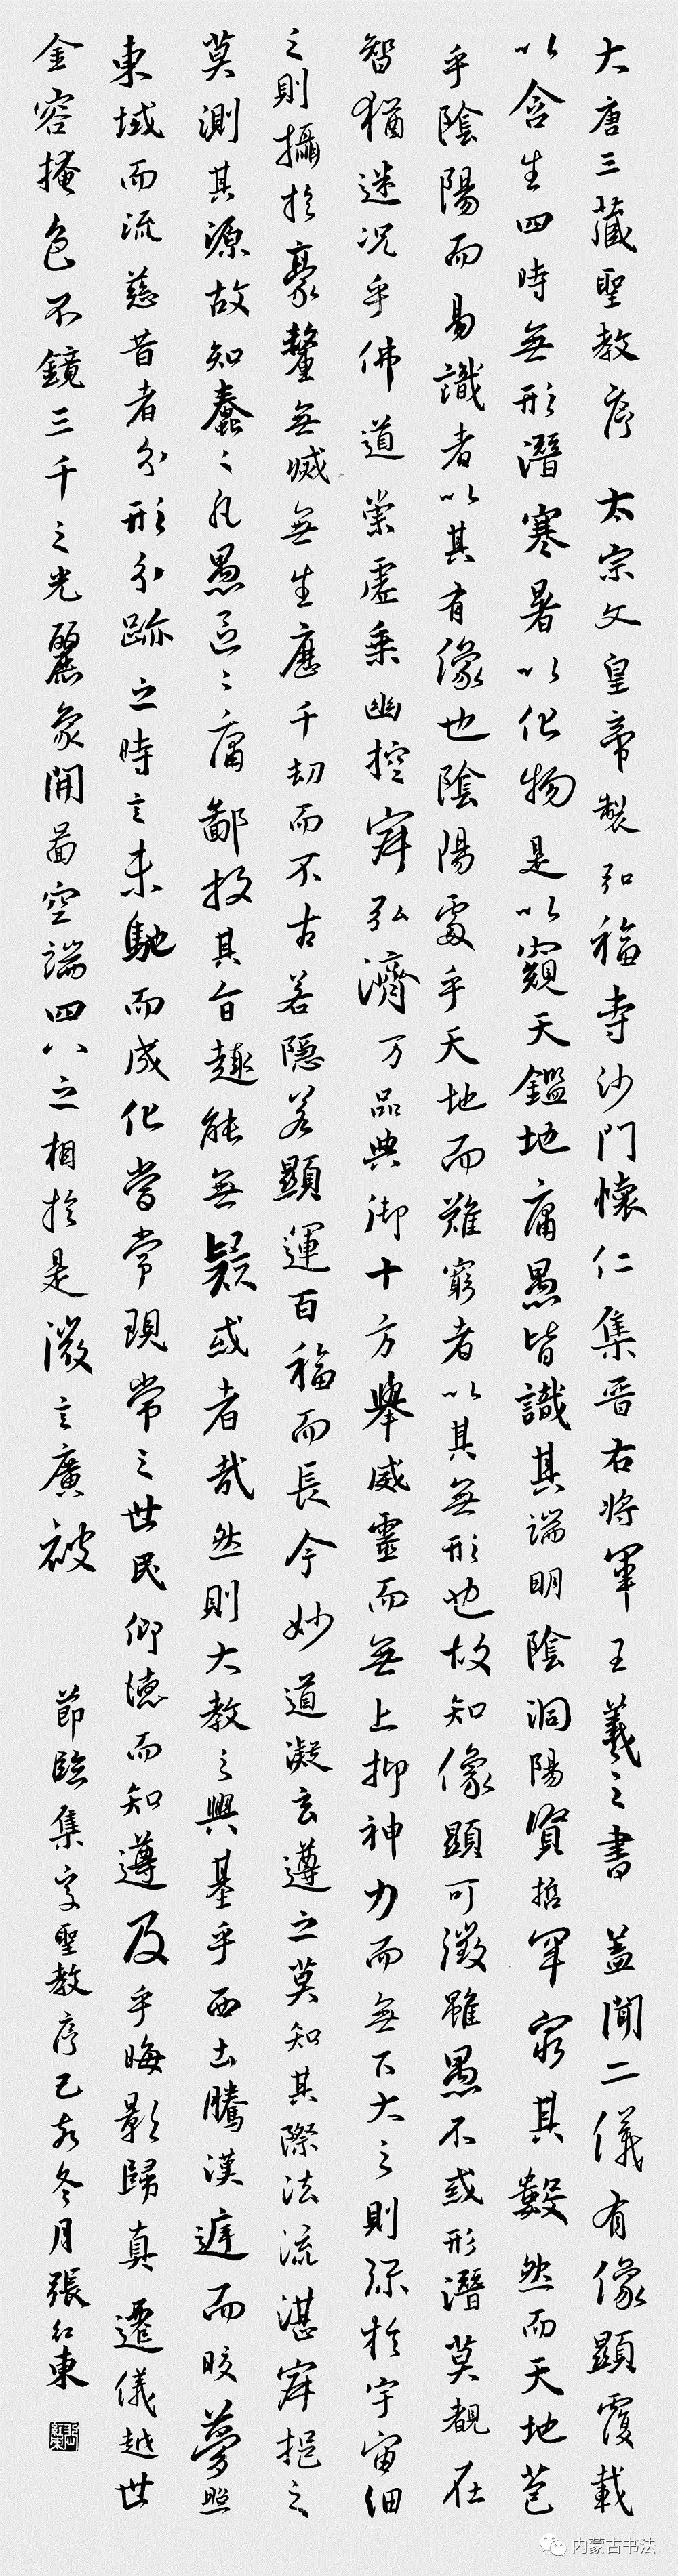 大唐三藏聖教序 太宗文皇帝製弘福寺沙門懷仁集晉右將軍王羲之書 蓋聞二儀有像顯覆載
以含生四時無形潛寒暑以化物是以窺天鑑地庸愚皆識其端明陰洞陽賢哲罕窮其數然而天地苞
乎陰陽而易識者以其有像也陰陽處乎天地而難窮者以其無形也故知像顯可徵雖愚不惑形潛莫覩在
智猶迷況乎佛道崇虛乘幽控寂弘濟万品典御十方舉威靈而無上抑神力而無下大之則彌於宇宙細
之則攝於豪釐無滅無生歷千劫而不古若隱若顯運百福而長今妙道凝玄遵之莫知其際法流湛寂挹之
莫測其源故知蠢〻凡愚區〻庸鄙投其旨趣能無疑或者哉然則大教之興基乎西土騰漢庭而皎夢照
東域而流慈昔者分形分跡之時言未馳而成化當常現常之世民仰德而知遵及乎晦影歸真遷儀越世
金容掩色不鏡三千之光麗象開圖空端四八之相於是微言廣被
節臨集字聖教序己亥冬月張紅東
内蒙古书法